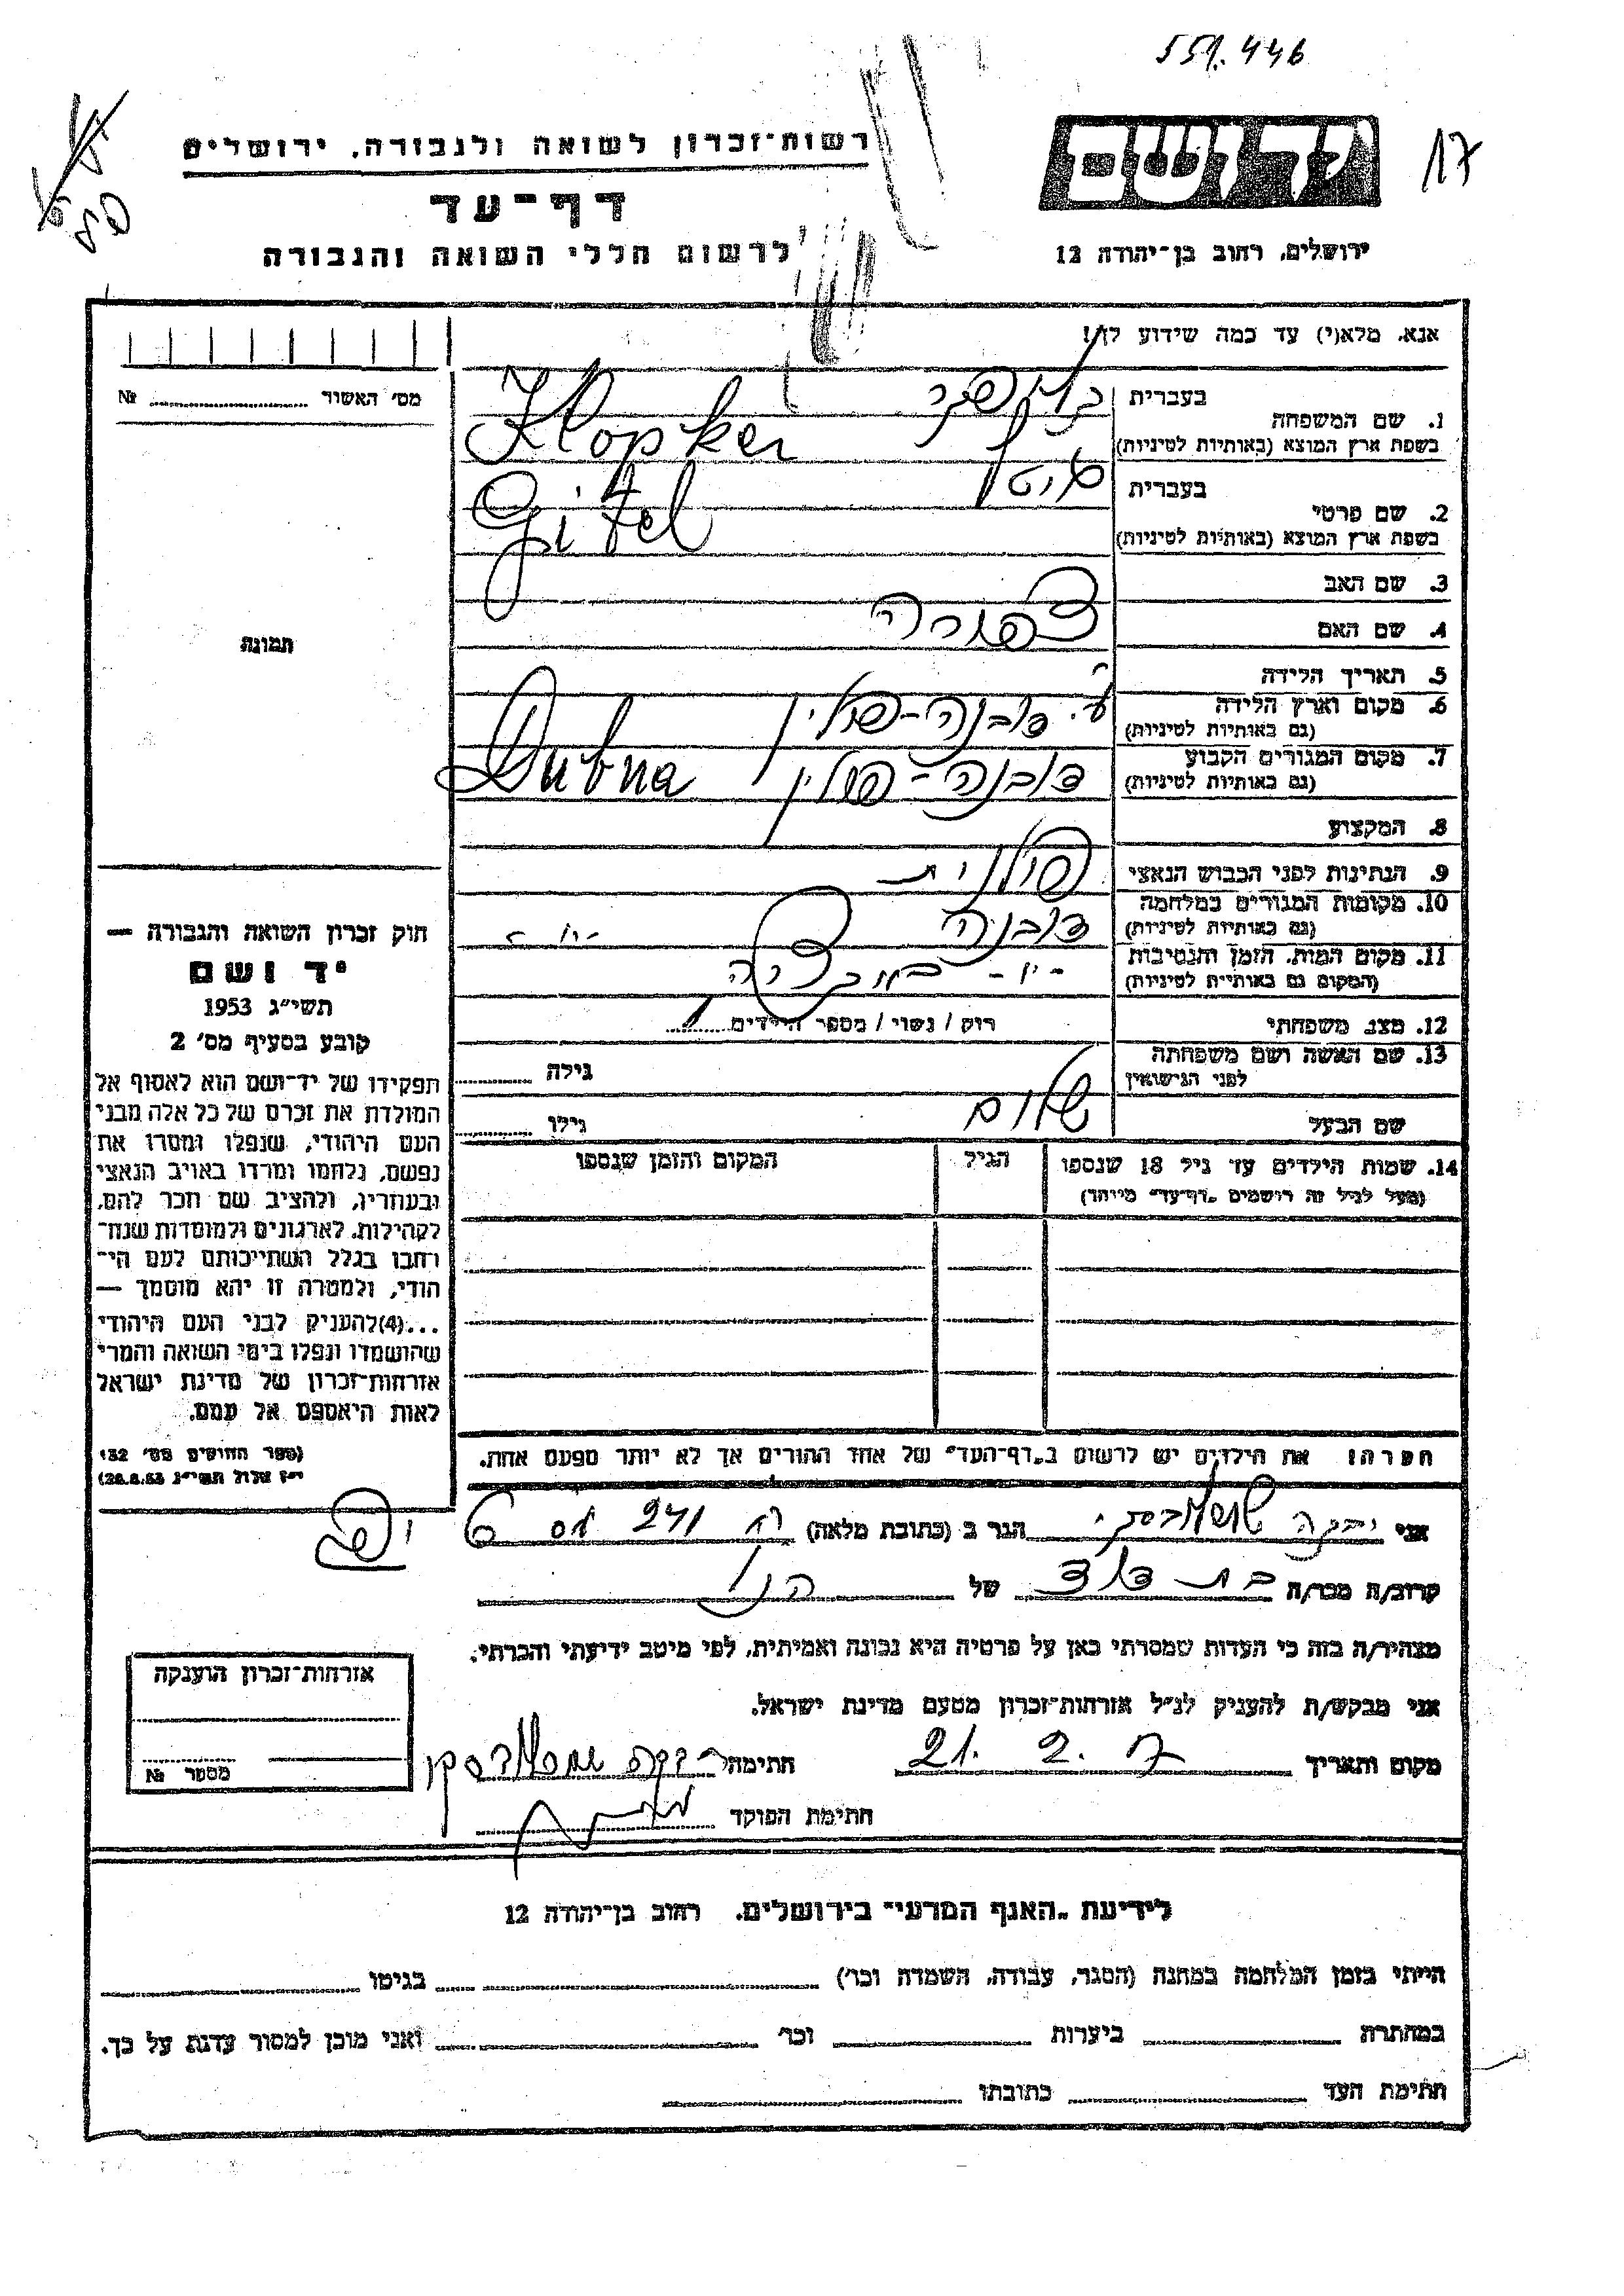 551.446
17
ידושם
ירושלים, רחוב בן־יהודה 12
רשות־זכרון לשואה ולגבורה, ירושלים
דף־עד
לרשום חללי השואה והגבורה
אנא, מלא(י) עד כמה שידוע לך!
מס׳ האשור ........ №
תמונה
1. שם המשפחה
בעברית קלופקר
בשפת ארץ המוצא (באותיות לטיניות) Klopker
2. שם פרטי
בעברית גיטל
בשפת ארץ המוצא (באותיות לטיניות) Gitel
3. שם האב
4. שם האם צפורה
5. תאריך הלידה
6. מקום וארץ הלידה דובנה-פולין
(גם באותיות לטיניות)
7. מקום המגורים הקבוע דובנה-פולין Dubna
(גם באותיות לטיניות)
8. המקצוע
9. הנתינות לפני הכבוש הנאצי פולנית
10. מקומות המגורים במלחמה דובנה -"-
(גם באותיות לטיניות)
11. מקום המות, הזמן והנסיבות -"-
(המקום גם באותיות לטיניות)
12. מצב משפחתי רוק / נשוי / מספר הילדים
13. שם האשה ושם משפחתה גילה
לפני הנישואין
שם הבעל שלום גילו
14. שמות הילדים עד גיל 18 שנספו הגיל המקום והזמן שנספו
(מעל לגיל זה רושמים „דף־עד״ מיוחד)
חוק זכרון השואה והגבורה —
יד ושם
תשי״ג 1953
קובע בסעיף מס׳ 2
תפקידו של יד־ושם הוא לאסוף אל
המולדת את זכרם של כל אלה מבני
העם היהודי, שנפלו ומסרו את
נפשם, נלחמו ומרדו באויב הנאצי
ובעוזריו, ולהציב שם וזכר להם,
לקהילות, לארגונים ולמוסדות שנח־
רבו בגלל השתייכותם לעם הי־
הודי, ולמטרה זו יהא מוסמך —
...(4)להעניק לבני העם היהודי
שהושמדו ונפלו בימי השואה והמרי
אזרחות־זכרון של מדינת ישראל
לאות היאספם אל עמם.
(ספר החוקים מס׳ 132
י״ז אלול תשי״ג 28.8.53)
הערה: את הילדים יש לרשום ב„דף־העד״ של אחד ההורים אך לא יותר מפעם אחת.
אני הגר ב (כתובת מלאה) 241 יפו
קרוב/ה מכר/ה בת דוד של הנ"ל
מצהיר/ה בזה כי העדות שמסרתי כאן על פרטיה היא נכונה ואמיתית, לפי מיטב ידיעתי והכרתי.
אני מבקש/ת להעניק לנ״ל אזרחות־זכרון מטעם מדינת ישראל.
מקום ותאריך 21. 2. חתימה
חתימת הפוקד
אזרחות־זכרון הוענקה
מספר №
לידיעת „האגף המדעי״ בירושלים, רחוב בן־יהודה 12
הייתי בזמן המלחמה במחנה (הסגר, עבודה, השמדה וכו׳) בגיטו
במחתרת ביערות וכו׳ ואני מוכן למסור עדות על כך.
חתימת העד כתובתו